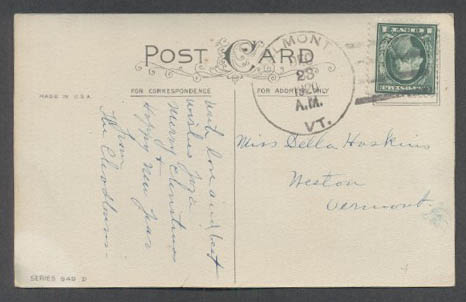 POST CARD
FOR CORRESPONDENCE
FOR ADDRESS ONLY
MADE IN U.S.A.
LMONT
23
A.M.
VT.
With love and best
wishes for a
Merry Christmas
&
Happy New Year
from
The
Miss Della Hoskins
Weston
Vermont.
SERIES 949 D